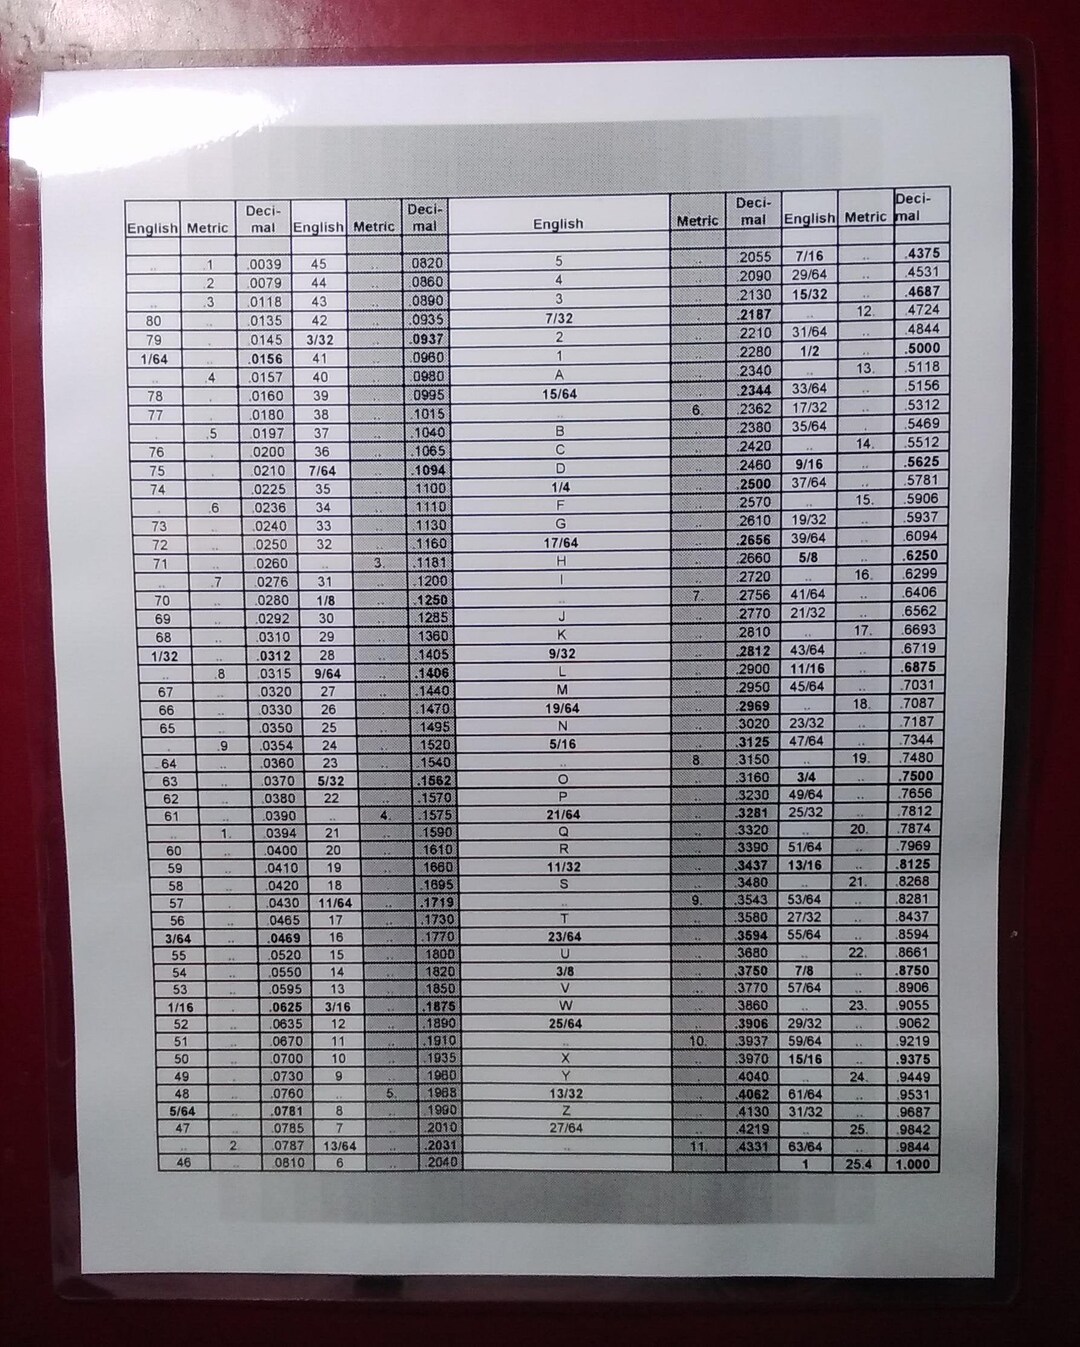 English Metric Deci-mal English Metric Deci-mal English Metric Deci-mal English Metric Deci-mal
.1 .0039 45 .0820 5 .2055 7/16 .4375
.2 .0079 44 .0860 4 .2090 29/64 .4531
.3 .0118 43 .0890 3 .2130 15/32 .4687
80 .0135 42 .0935 7/32 .2187 12. .4724
79 .0145 3/32 .0937 2 .2210 31/64 .4844
1/64 .0156 41 .0960 1 .2280 1/2 .5000
.4 .0157 40 .0980 A .2340 13. .5118
78 .0160 39 .0995 15/64 .2344 33/64 .5156
77 .0180 38 .1015 6. .2362 17/32 .5312
.5 .0197 37 .1040 B .2380 35/64 .5469
76 .0200 36 .1065 C .2420 14. .5512
75 .0210 7/64 .1094 D .2460 9/16 .5625
74 .0225 35 .1100 1/4 .2500 37/64 .5781
.6 .0236 34 .1110 F .2570 15. .5906
73 .0240 33 .1130 G .2610 19/32 .5937
72 .0250 32 .1160 17/64 .2656 39/64 .6094
71 .0260 3. .1181 H .2660 5/8 .6250
.7 .0276 31 .1200 I .2720 16. .6299
70 .0280 1/8 .1250 7. .2756 41/64 .6406
69 .0292 30 .1285 J .2770 21/32 .6562
68 .0310 29 .1360 K .2810 17. .6693
1/32 .0312 28 .1405 9/32 .2812 43/64 .6719
.8 .0315 9/64 .1406 L .2900 11/16 .6875
67 .0320 27 .1440 M .2950 45/64 .7031
66 .0330 26 .1470 19/64 .2969 18. .7087
65 .0350 25 .1495 N .3020 23/32 .7187
.9 .0354 24 .1520 5/16 .3125 47/64 .7344
64 .0360 23 .1540 8. .3150 19. .7480
63 .0370 5/32 .1562 O .3160 3/4 .7500
62 .0380 22 .1570 P .3230 49/64 .7656
61 .0390 4. .1575 21/64 .3281 25/32 .7812
1. .0394 21 .1590 Q .3320 20. .7874
60 .0400 20 .1610 R .3390 51/64 .7969
59 .0410 19 .1660 11/32 .3437 13/16 .8125
58 .0420 18 .1695 S .3480 21. .8268
57 .0430 11/64 .1719 9. .3543 53/64 .8281
56 .0465 17 .1730 T .3580 27/32 .8437
3/64 .0469 16 .1770 23/64 .3594 55/64 .8594
55 .0520 15 .1800 U .3680 22. .8661
54 .0550 14 .1820 3/8 .3750 7/8 .8750
53 .0595 13 .1850 V .3770 57/64 .8906
1/16 .0625 3/16 .1875 W .3860 23. .9055
52 .0635 12 .1890 25/64 .3906 29/32 .9062
51 .0670 11 .1910 10. .3937 59/64 .9219
50 .0700 10 .1935 X .3970 15/16 .9375
49 .0730 9 .1960 Y .4040 24. .9449
48 .0760 5. .1968 13/32 .4062 61/64 .9531
5/64 .0781 8 .1990 Z .4130 31/32 .9687
47 .0785 7 .2010 27/64 .4219 25. .9842
2. .0787 13/64 .2031 11. .4331 63/64 .9844
46 .0810 6 .2040 1 25.4 1.000